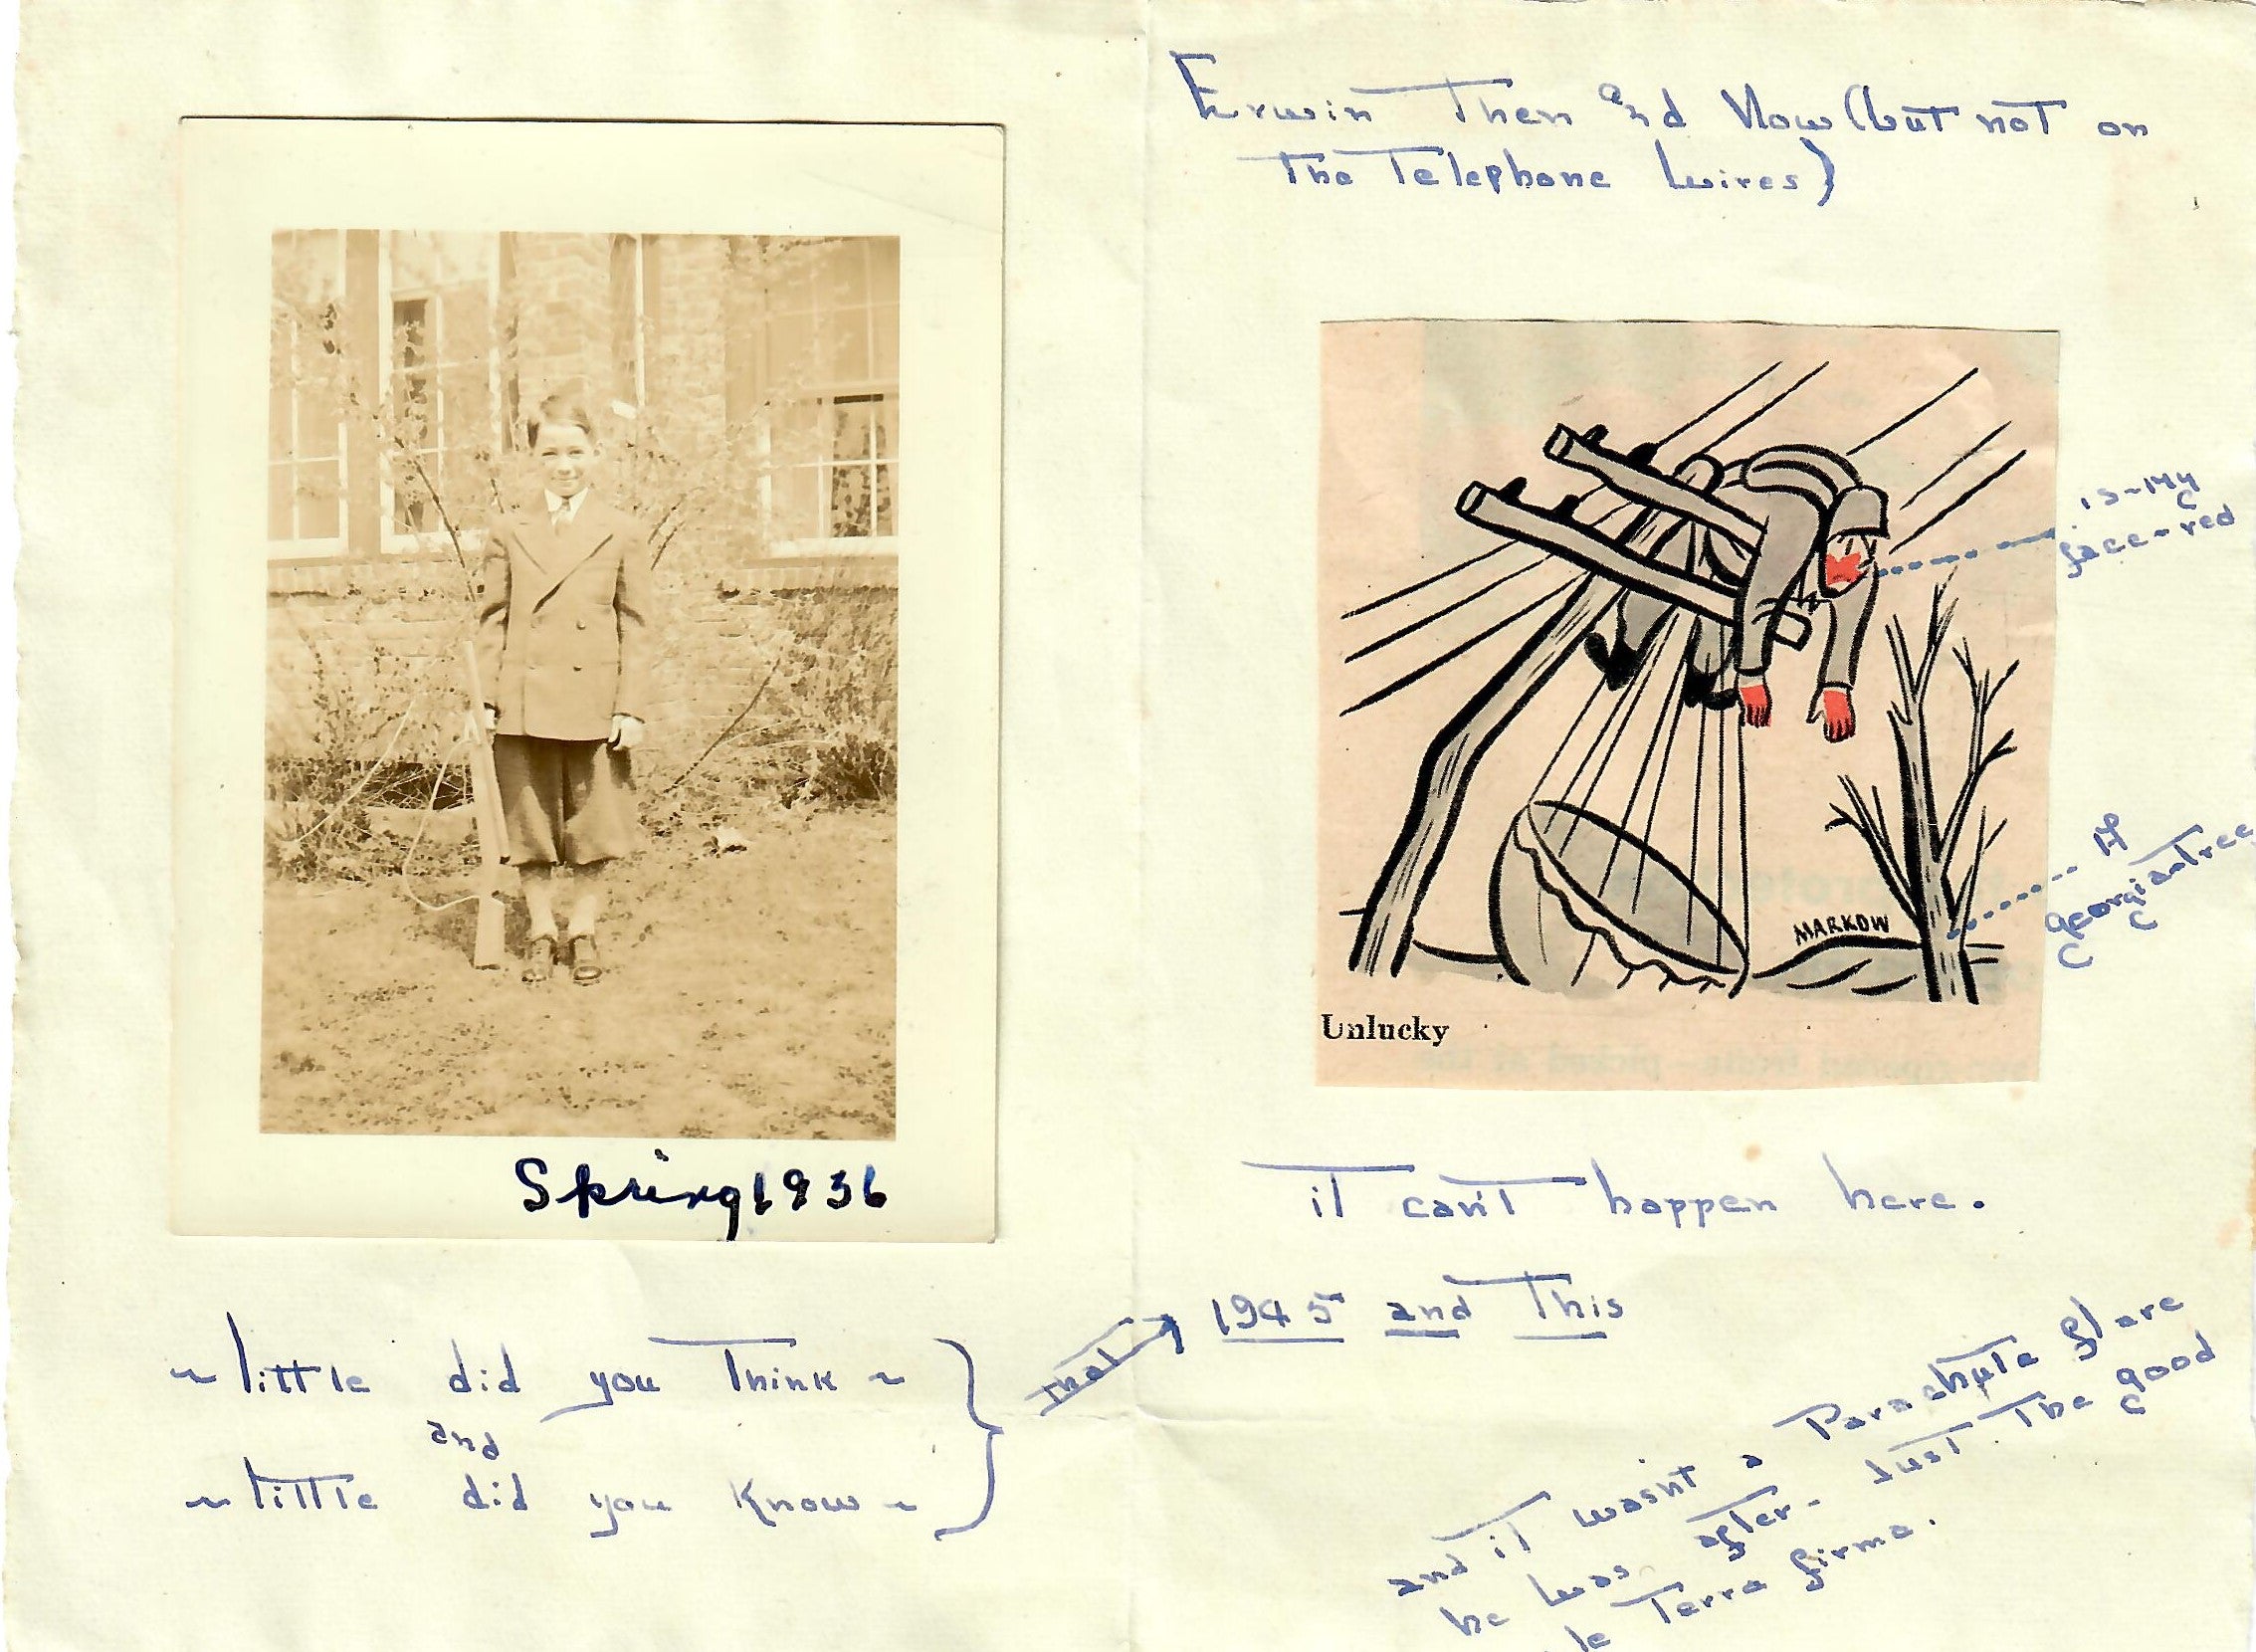 Spring 1936
~ little did you Think ~
and
~ little did you Know ~
that
Erwin Then and Now (but not on
The Telephone Wires)
is-my
face-red
A
georgian tree
MARKOW
Unlucky
it can't happen here.
1945 and This
and it wasn't a Parachute flare
he was after. Just the good
le Terra firma.